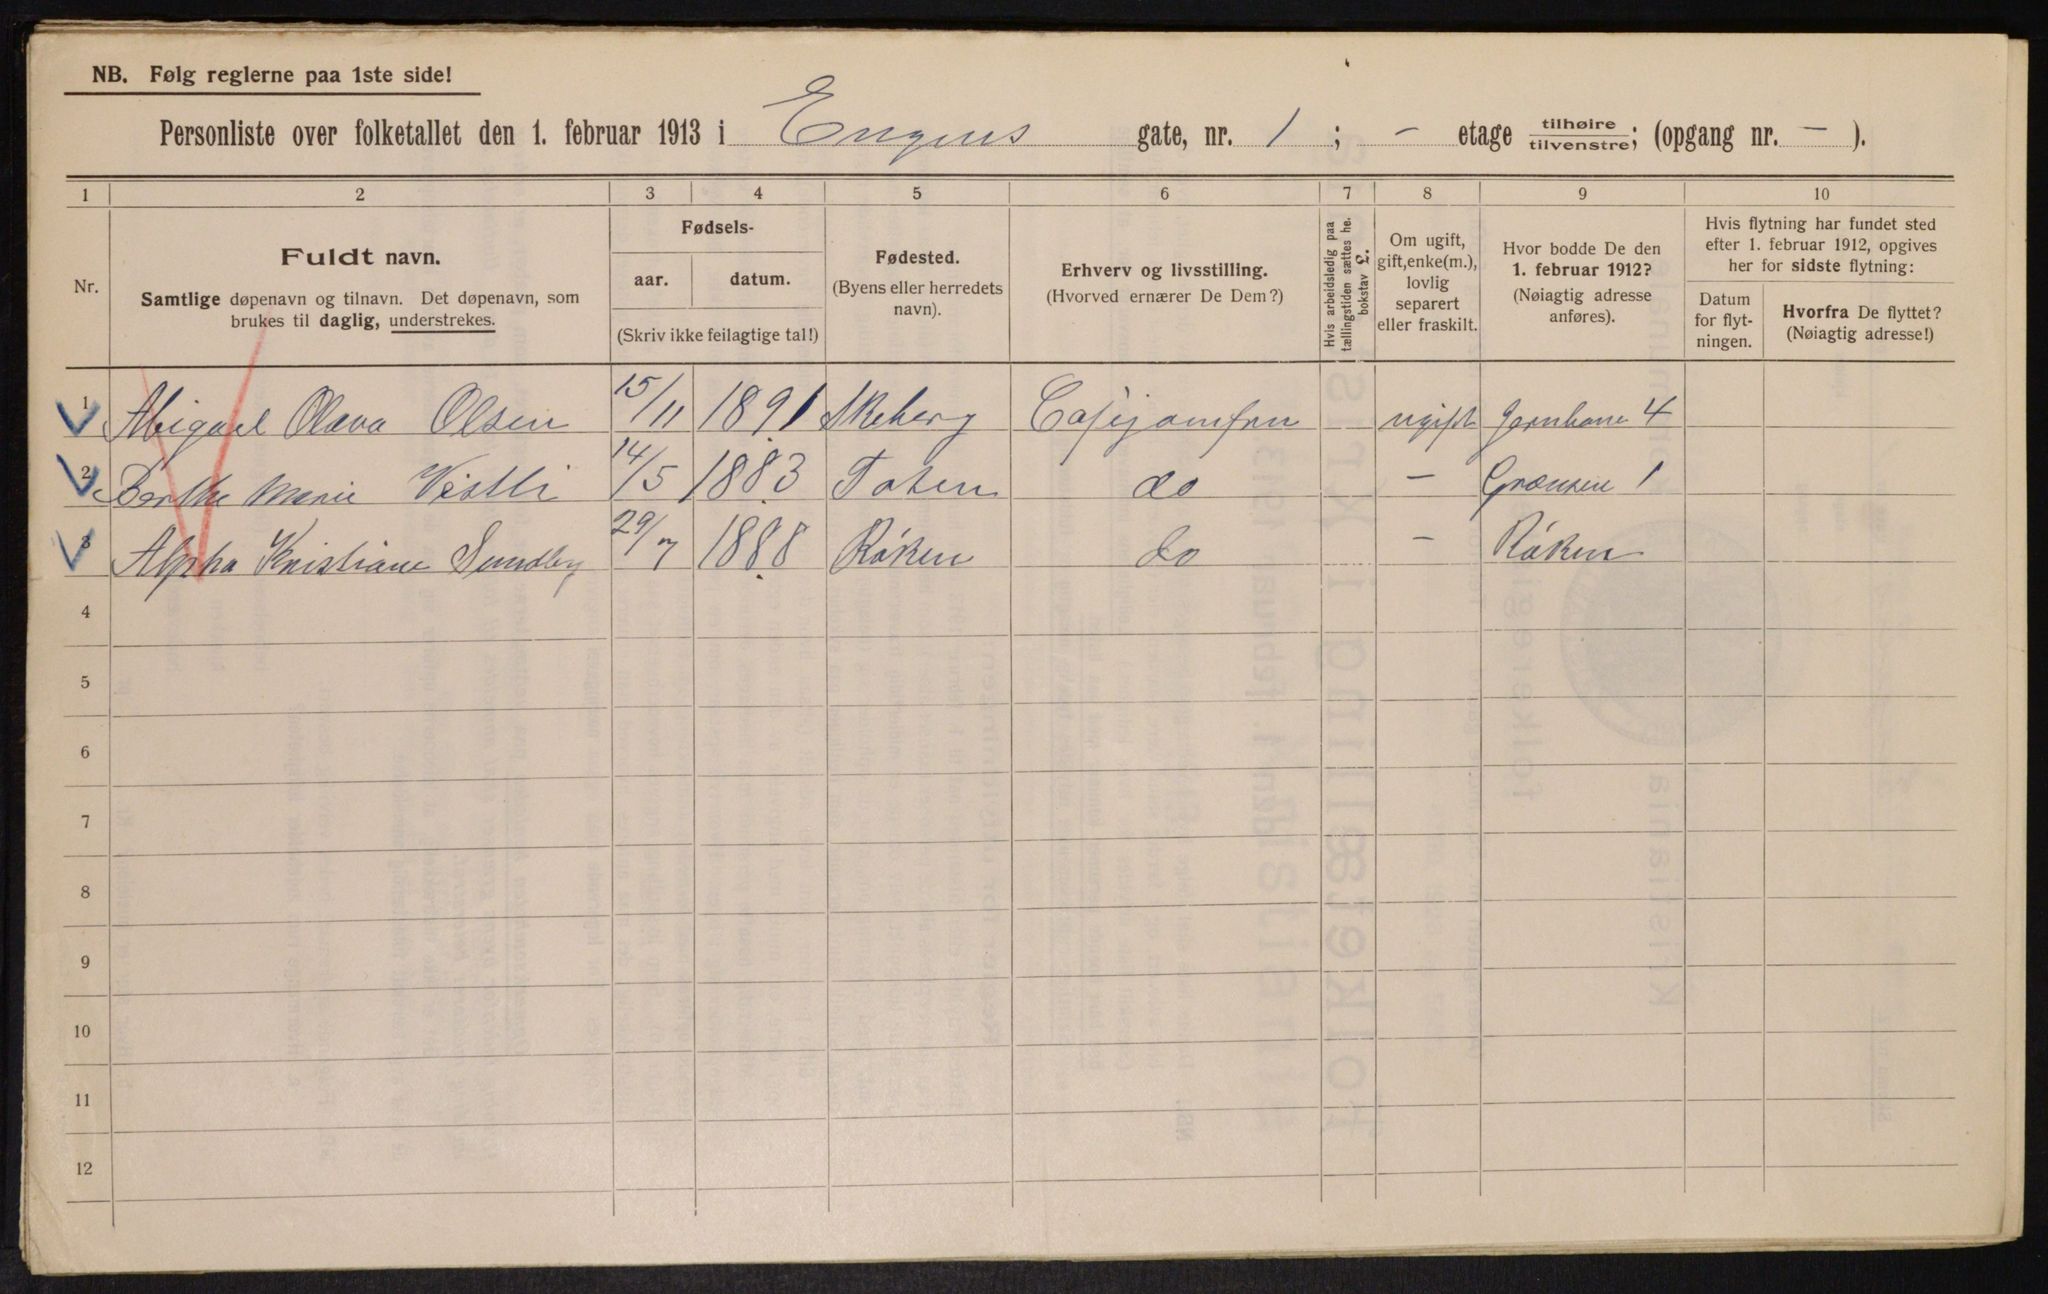 NB. Følg reglerne paa 1ste side!
Personliste over folketallet den 1. februar 1913 i Engens gate, nr. 1; - etage tilhøire/tilvenstre; (opgang nr. - ).
1 2 3 4 5 6 7 8 9 10
Nr.
Fuldt navn.
Samtlige døpenavn og tilnavn. Det døpenavn, som
brukes til daglig, understrekes.
Fødsels-
aar. datum.
(Skriv ikke feilagtige tal!)
Fødested.
(Byens eller herredets
navn).
Erhverv og livsstilling.
(Hvorved ernærer De Dem?)
Hvis arbeidsledig paa
tællingstiden sættes he.
bokstav L.
Om ugift,
gift, enke(m.),
lovlig
separert
eller fraskilt.
Hvor bodde De den
1. februar 1912?
(Nøiagtig adresse
anføres).
Hvis flytning har fundet sted
efter 1. februar 1912, opgives
her for sidste flytning:
Datum
for flyt-
ningen.
Hvorfra De flyttet?
(Nøiagtig adresse!)
1 Abigael Olava Olsen 15/11 1891 Skeberg Cafejomfru ugift Jernbane 4
2 Berthe Marie Vestli 14/5 1883 Toten do - Grænsen 1
3 Alpha Kristiane Sundby 29/7 1888 Røken do - Røken
4
5
6
7
8
9
10
11
12